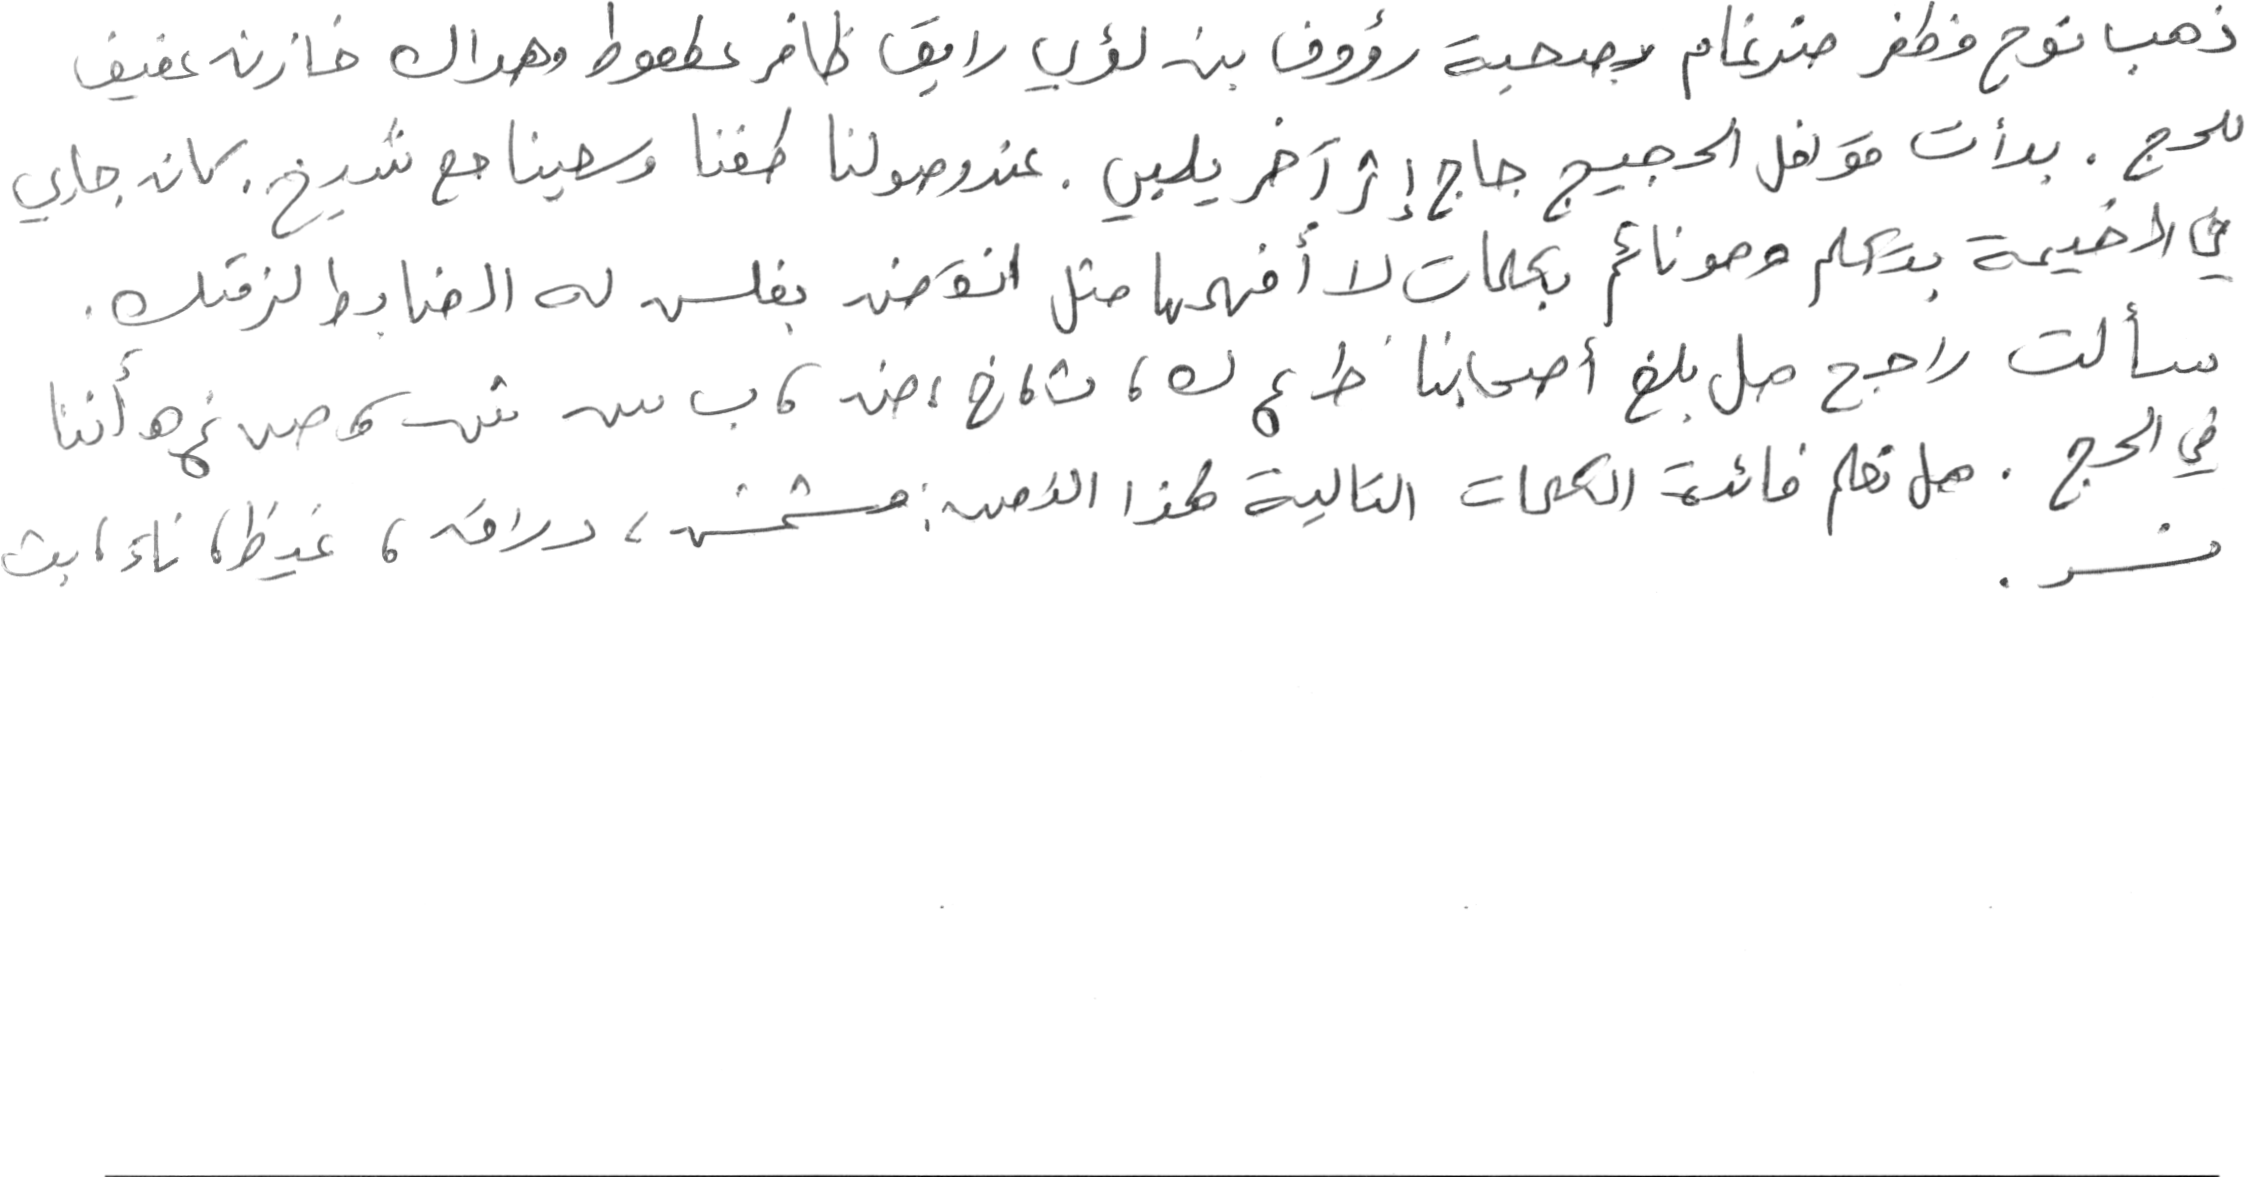 ذهب نوح مظفر ضرغام بصحبة رؤوف بن لؤي رايق ظافر عطعوط وهدال خازن عفيف
للحج . بدأت قوافل الحجيج حاج إثر آخر يلبي . عند وصولنا طفنا وسعينا مع شيخ . كان جاري
في الخيمة يتكلم وهو نائم بكلمات لا أفهمها مثل انقض بغلس له الضابط لزقتك .
سألت راجح هل بلغ أصحابنا ط ع ك ، ث ، خ ، ض ، ب س ش ، ص غ ه أننا
في الحج . هل تعلم فائدة الكلمات التالية لهذا النص : مشمش ، دراق ، غيظ ، ناء ، بث
نر .